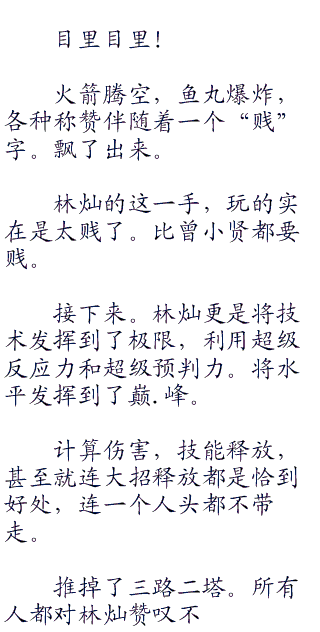 目里目里！
火箭腾空，鱼丸爆炸，
各种称赞伴随着一个“贱”
字。飘了出来。
林灿的这一手，玩的实
在是太贱了。比曾小贤都要
贱。
接下来。林灿更是将技
术发挥到了极限，利用超级
反应力和超级预判力。将水
平发挥到了巅.峰。
计算伤害，技能释放，
甚至就连大招释放都是恰到
好处，连一个人头都不带
走。
推掉了三路二塔。所有
人都对林灿赞叹不